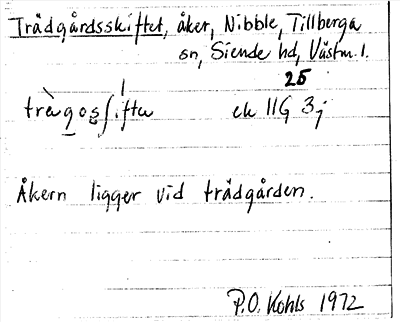 Trädgårdsskiftet, åker, Nibble, Tillberga
sn, Siende hd, Västm. l.
25
ek 11G 3j
Åkern ligger vid trädgården.
P.O. Kohls 1972